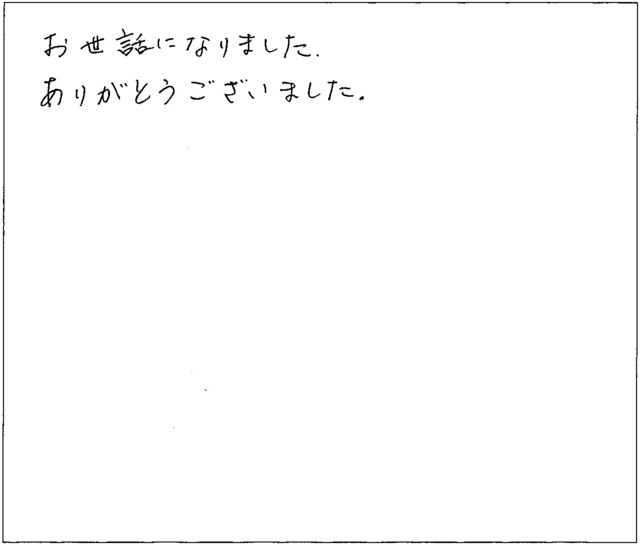 お世話になりました.
ありがとうございました。